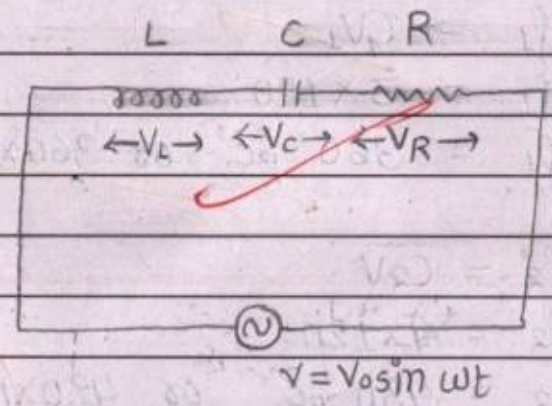 L C R
←V_L→ ←V_C→ ←V_R→
v = V₀sin ωt